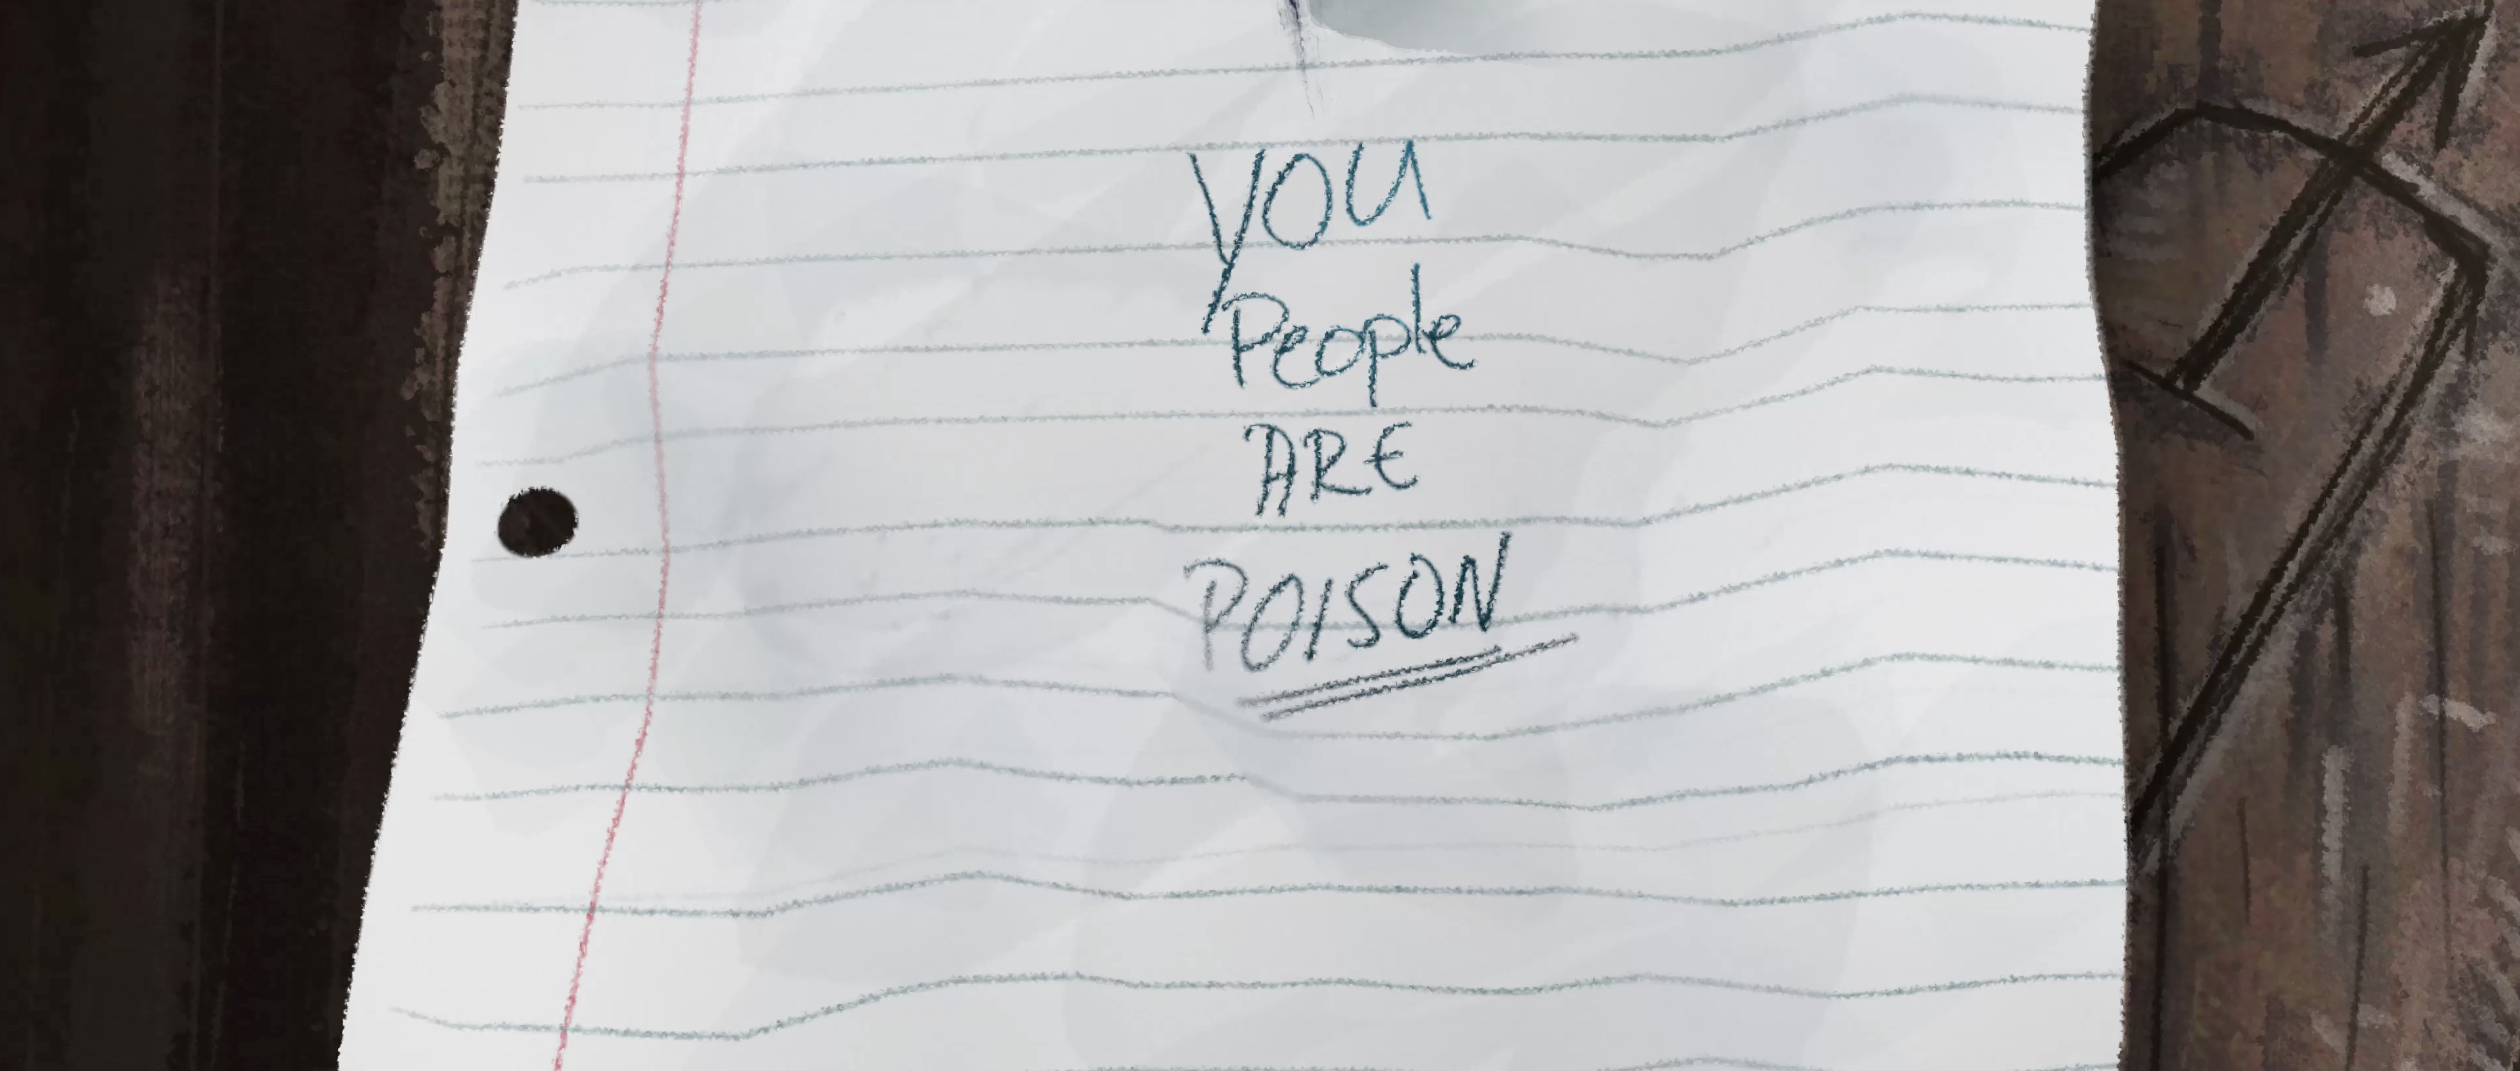 YOU
People
ARE
POISON